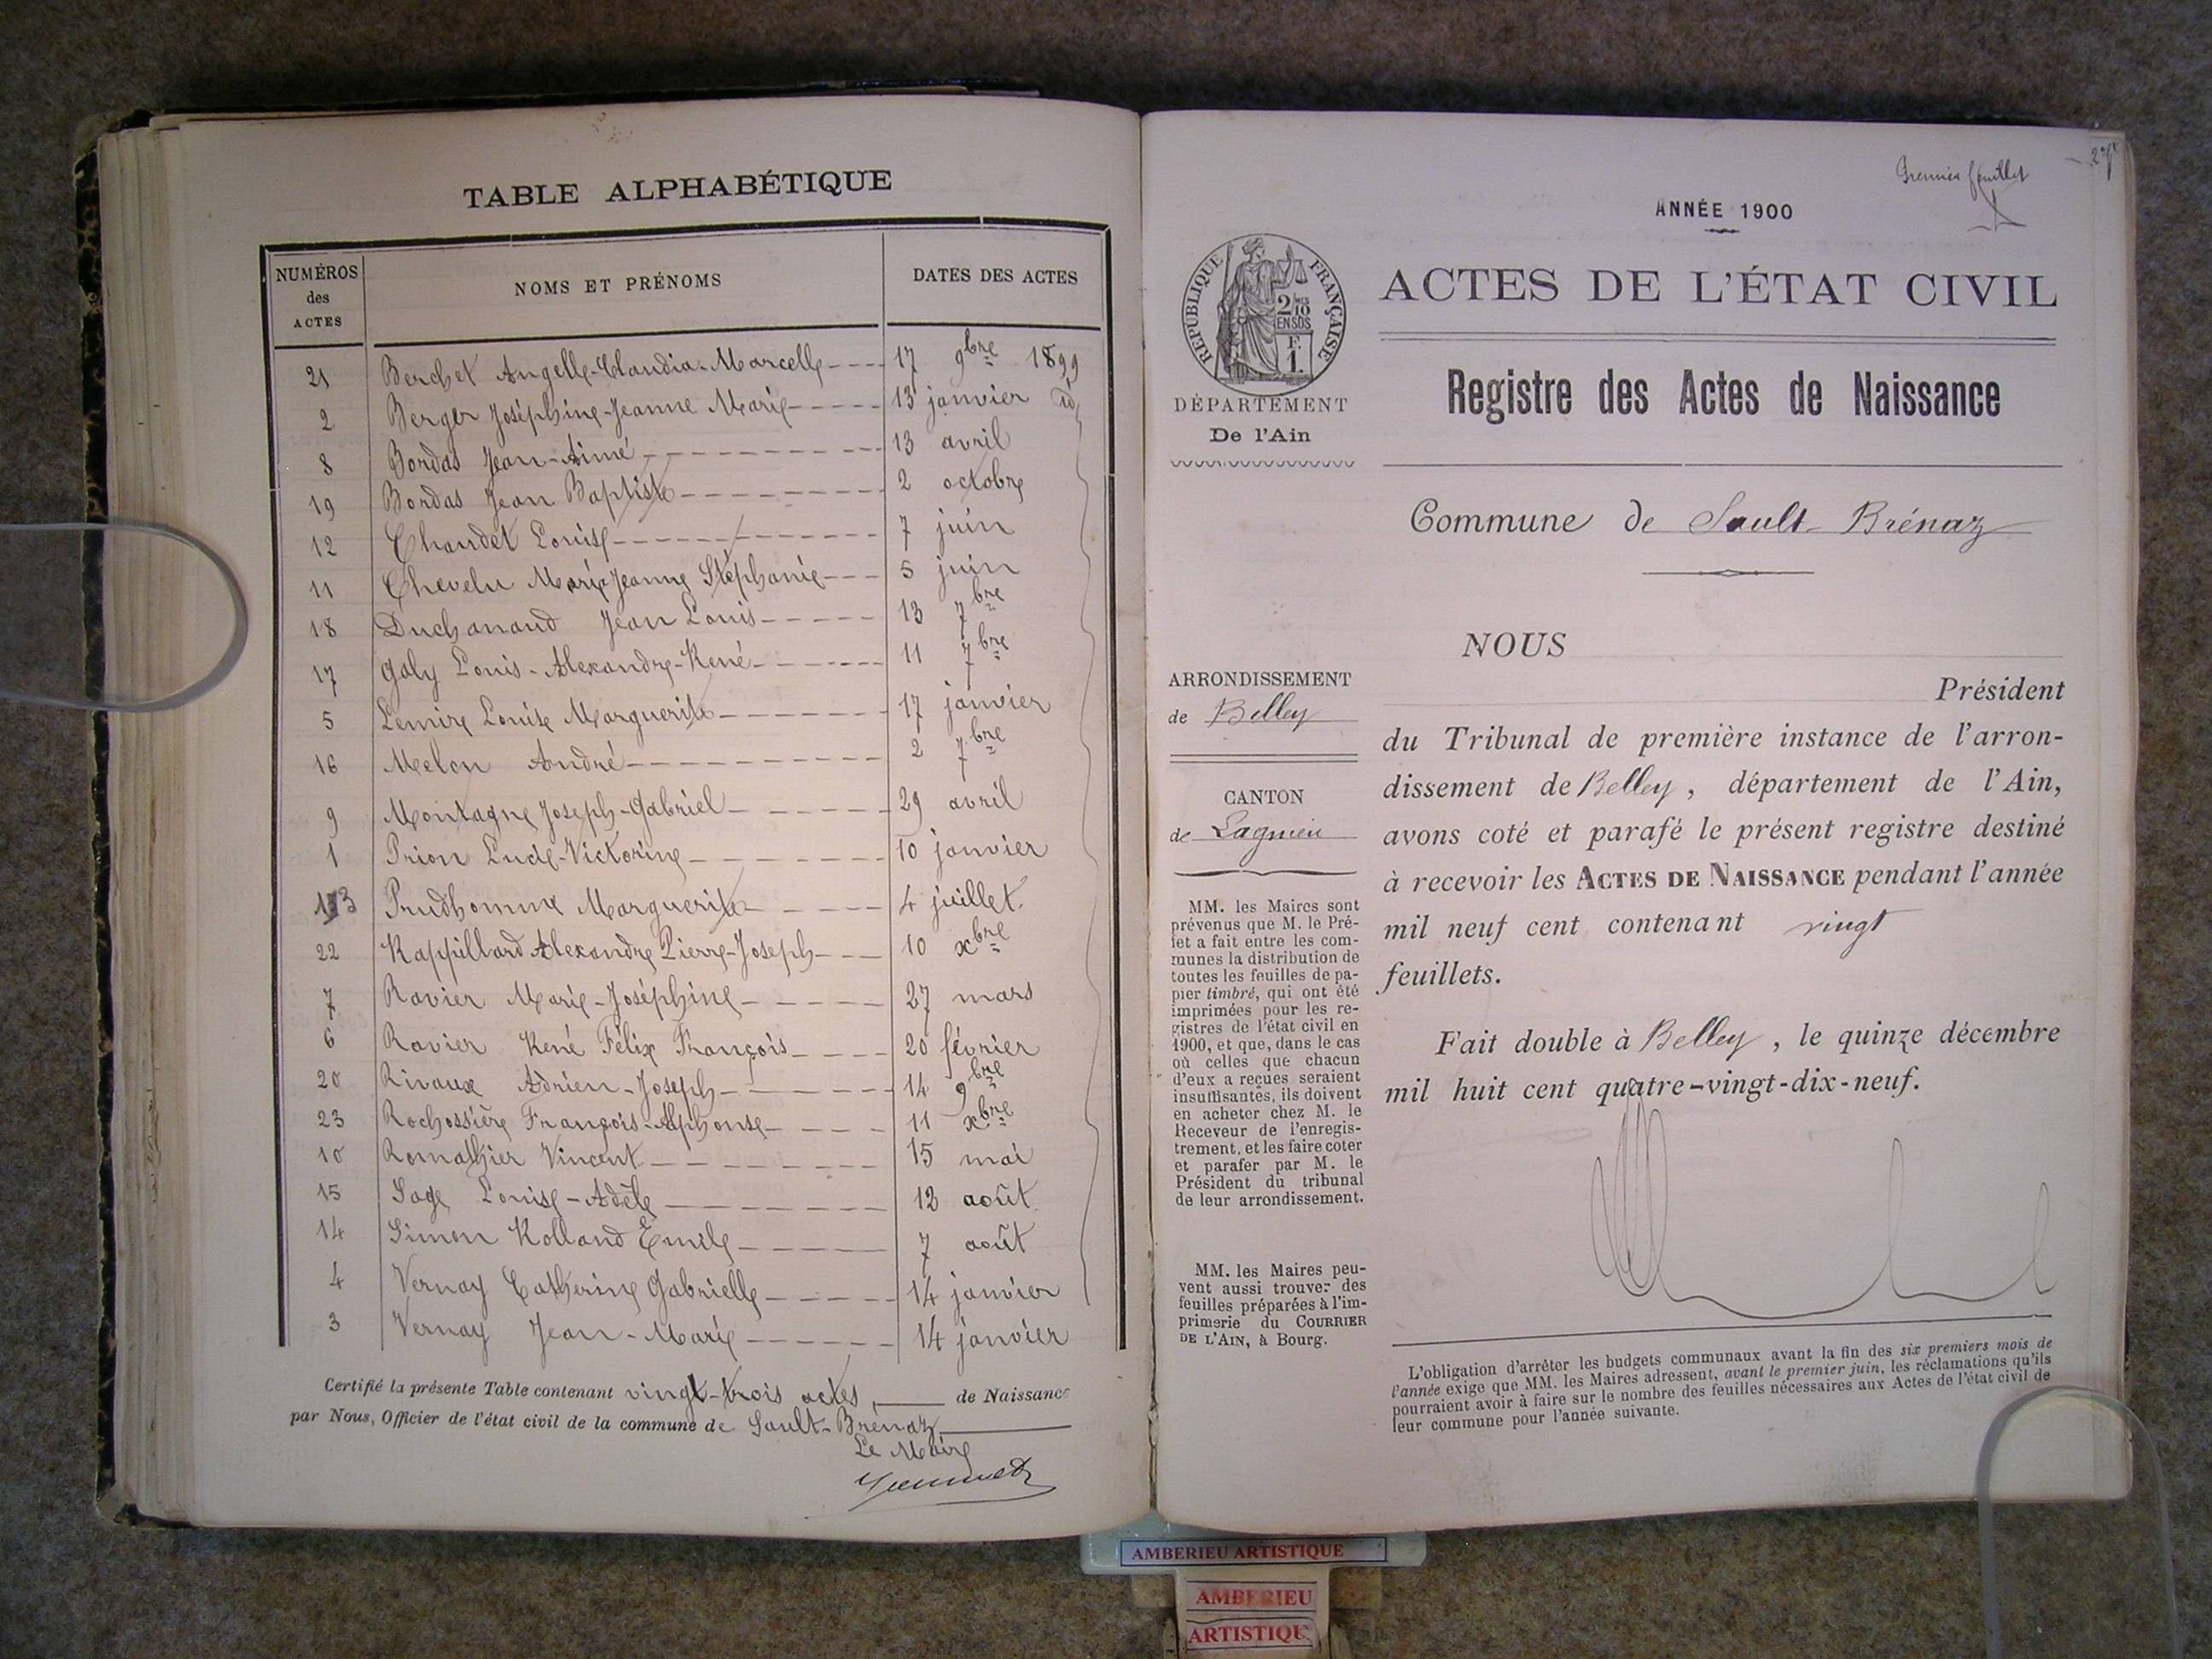 TABLE ALPHABÉTIQUE
NUMÉROS des ACTES
NOMS ET PRÉNOMS
DATES DES ACTES
21 Berchet Angelle-Claudia-Marcelle 17 9bre 1899
2 Berger Joséphine-Jeanne Marie 13 janvier id
8 Bordas Jean-Aimé 13 avril
19 Bordas Jean Baptiste 2 octobre
12 Chaudet Louise 7 juin
11 Chevelu Marie Jeanne Stéphanie 5 juin
18 Duchanaud Jean Louis 13 7bre
17 Galy Louis-Alexandre-René 11 7bre
5 Lemire Louise Marguerite 17 janvier
16 Melon André 2 7bre
9 Montagne Joseph-Gabriel 29 avril
1 Prion Lucie-Victorine 10 janvier
13 Prudhomme Marguerite 4 juillet
22 Rappillard Alexandre Pierre-Joseph 10 xbre
7 Ravier Marie-Joséphine 27 mars
6 Ravier René Félix François 20 février
20 Rivaux Adrien-Joseph 14 9bre
23 Rochossière François-Alphonse 11 xbre
10 Romathier Vincent 15 mai
15 Sage Louise-Adèle 12 août
14 Simon Rolland Emile 7 août
4 Vernay Catherine Gabrielle 14 janvier
3 Vernay Jean-Marie 14 janvier
Certifié la présente Table contenant vingt-trois actes, de Naissance
par Nous, Officier de l'état civil de la commune de Sault-Brénaz
Le Maire
Premier feuillet
ANNÉE 1900
RÉPUBLIQUE FRANÇAISE
2/10 EN SUS
F. 1.
ACTES DE L'ÉTAT CIVIL
DÉPARTEMENT
De l'Ain
Registre des Actes de Naissance
Commune de Sault-Brénaz
ARRONDISSEMENT
de Belley
CANTON
de Lagnieu
MM. les Maires sont
prévenus que M. le Pré-
fet a fait entre les com-
munes la distribution de
toutes les feuilles de pa-
pier timbré, qui ont été
imprimées pour les re-
gistres de l'état civil en
1900, et que, dans le cas
où celles que chacun
d'eux a reçues seraient
insuffisantes, ils doivent
en acheter chez M. le
Receveur de l'enregis-
trement, et les faire coter
et parafer par M. le
Président du tribunal
de leur arrondissement.
MM. les Maires peu-
vent aussi trouver des
feuilles préparées à l'im-
primerie du COURRIER
DE L'AIN, à Bourg.
NOUS
Président
du Tribunal de première instance de l'arron-
dissement de Belley, département de l'Ain,
avons coté et parafé le présent registre destiné
à recevoir les ACTES DE NAISSANCE pendant l'année
mil neuf cent contenant vingt
feuillets.
Fait double à Belley, le quinze décembre
mil huit cent quatre-vingt-dix-neuf.
L'obligation d'arrêter les budgets communaux avant la fin des six premiers mois de
l'année exige que MM. les Maires adressent, avant le premier juin, les réclamations qu'ils
pourraient avoir à faire sur le nombre des feuilles nécessaires aux Actes de l'état civil de
leur commune pour l'année suivante.
AMBERIEU ARTISTIQUE
AMBERIEU
ARTISTIQUE